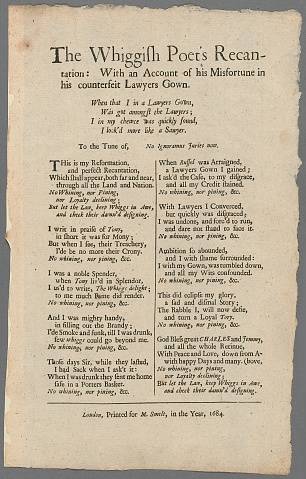 The Whiggish Poet's Recan-
tation: With an Account of his Misfortune in
his counterfeit Lawyers Gown.
When that I in a Lawyers Gown,
Was got amongst the Lawyers;
I in my cheat was quickly found,
I look'd more like a Sawyer.
To the Tune of, No Ignoramus Juries now.
THis is my Reformation,
and perfect Recantation,
Which shall appear, both far and near,
through all the Land and Nation.
No Whining, nor Pining,
nor Loyalty declining;
But let the Law, keep Whiggs in Awe,
and check their damn'd designing.
I writ in praise of Tony,
in short it was for Mony;
But when I see, their Treachery,
I'de be no more their Crony.
No whining, nor pining, &c.
I was a noble Spender,
when Tony liv'd in Splendor,
I us'd to write, The Whiggs delight;
to me much Bante did render.
No whining, nor pining, &c.
And I was mighty handy,
in filling out the Brandy;
I'de Smoke and funk, till I was drunk,
few whiggs could go beyond me.
No whining, nor pining, &c.
Those days Sir, while they lasted,
I had Sack when I ask't it:
When I was drunk they sent me home
safe in a Porters Basket.
No whining, nor pining, &c.
When Russel was Arraigned,
a Lawyers Gown I gained;
I ask'd the Case, to my disgrace,
and all my Credit stained.
No whining, nor pining, &c.
With Lawyers I Conversed,
but quickly was disgraced;
I was undone, and forc'd to run,
and dare not stand to face it.
No whining, nor pining, &c.
Ambition so abounded,
and I with shame surrounded:
I with my Gown, was tumbled down,
and all my Wits confounded.
No whining, nor pining, &c.
This did eclipse my glory,
a sad and dismal Story;
The Rabble I, will now defie,
and turn a Loyal Tory.
No whining, nor pining, &c.
God Bless great CHARLES and Jemmy,
and all the whole Retinue,
With Peace and Love, down from A-
with happy Days and many. (bove,
No whining, nor pining,
nor Loyalty declining;
But let the Law, keep Whiggs in Awe,
and check their damn'd designing.
London, Printed for M. Smelt, in the Year, 1684.